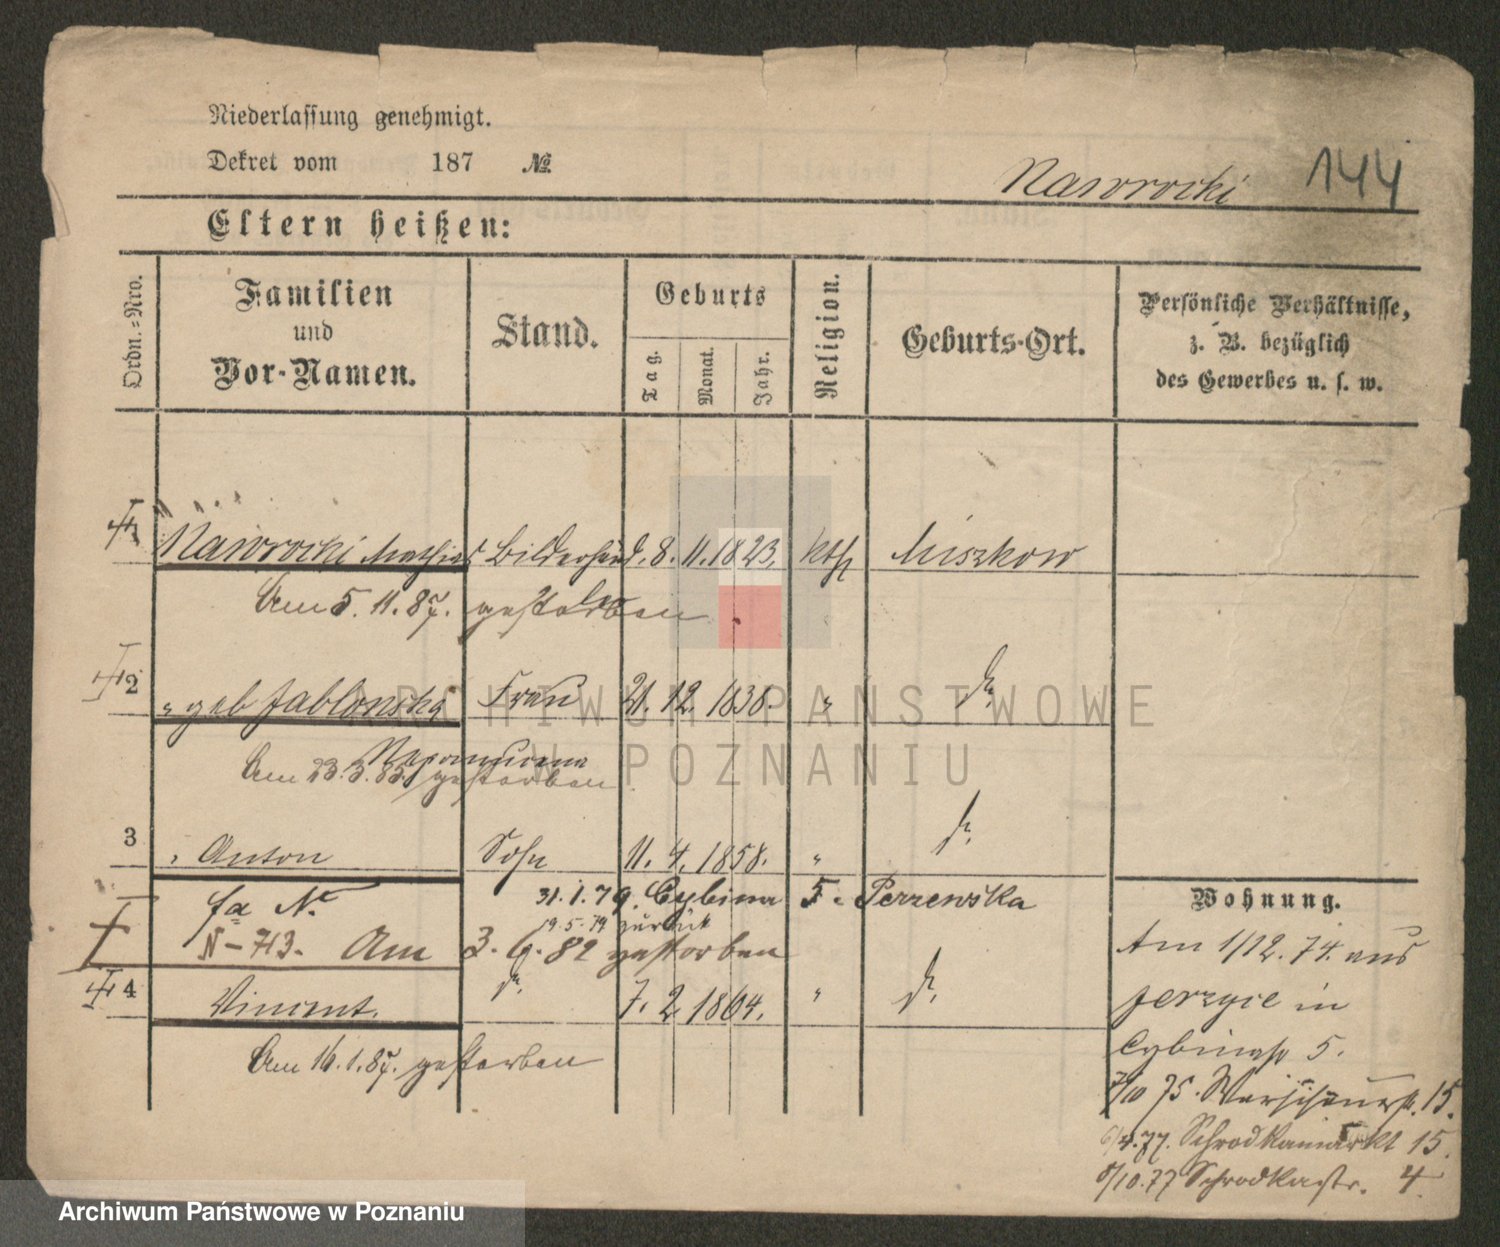 Niederlassung genehmigt.
Dekret vom 187 №
Nawrocki 144
Eltern heißen:
Ordn.=Nro.
Familien
und
Vor-Namen.
Stand.
Geburts
Tag.
Monat.
Jahr.
Religion.
Geburts-Ort.
Persönliche Verhältnisse,
z. B. bezüglich
des Gewerbes u. s. w.
Nawrocki Mathias Bilderhänd. 8. 11. 1823. kth Miszkow
Am 5. 11. 87. gestorben
2 " geb Jablonska Frau 21. 12. 1838. " do.
Nepomucena
Am 23. 3. 85. gestorben
3 " Anton Sohn 11. 4. 1858. " do.
fa No 31. 1. 79. Cybina 5. Perzewska
19. 5. 79 zurück
N-713. Am 3. 6. 82 gestorben
4 Vincent. do. 7. 2. 1864. " do.
Am 16. 1. 87. gestorben
Wohnung.
Am 1/12. 74. aus
Jerzyce in
Cybinastr 5.
7/10 75. Warschauerstr. 15.
6/4. 77. Schrodkamarkt 15.
8/10. 77 Schrodkastr. 4.
ARCHIWUM PAŃSTWOWE
W POZNANIU
Archiwum Państwowe w Poznaniu